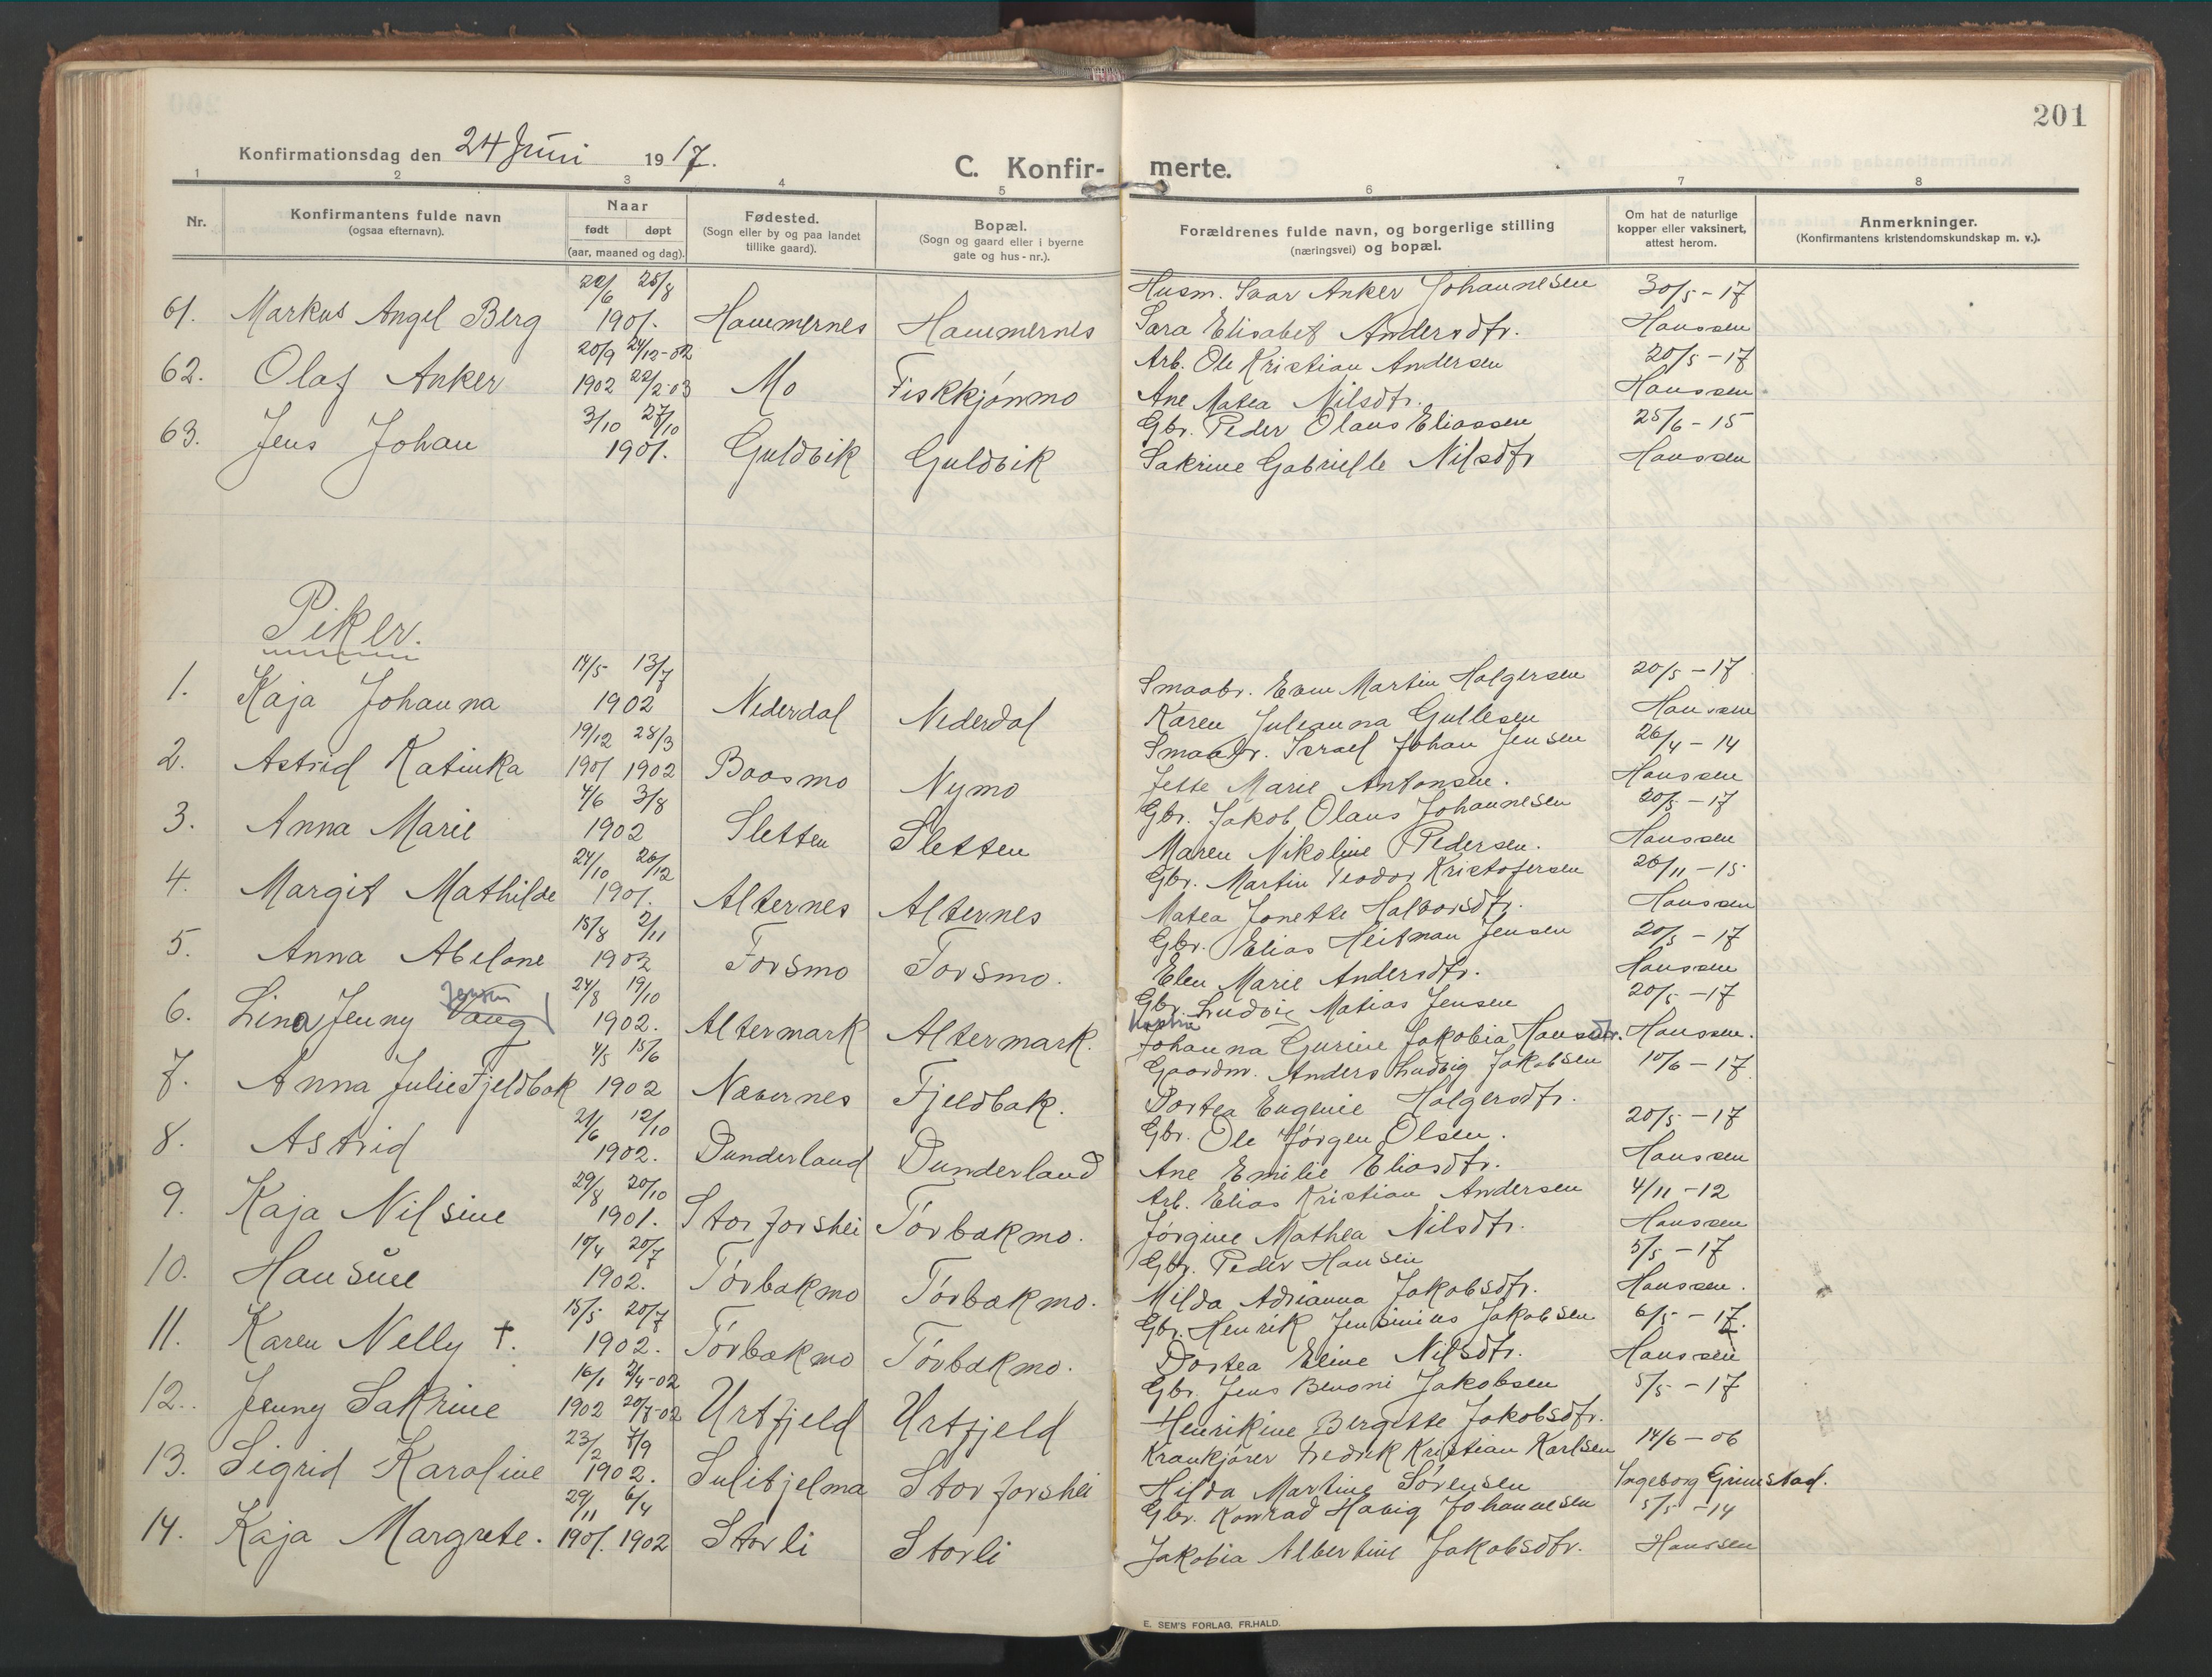 201
Konfirmationsdag den 24 Juni 1917.
C. Konfir- merte.
1 2 3 4 5 6 7 8
Nr.
Konfirmantens fulde navn
(ogsaa efternavn).
Naar
født døpt
(aar, maaned og dag).
Fødested.
(Sogn eller by og paa landet
tillike gaard).
Bopæl.
(Sogn og gaard eller i byerne
gate og hus-nr.).
Forældrenes fulde navn, og borgerlige stilling
(næringsvei) og bopæl.
Om hat de naturlige
kopper eller vaksinert,
attest herom.
Anmerkninger.
(Konfirmantens kristendomskundskap m. v.).
25/8 Husm. Ivar Anker Johannesen 30/5-17
61. Markus Angel Berg 1901. Hammernes Hammernes Sara Elisabet Andersdtr. Hanssen
20/9 24/12-02 Arb. Ole Kristian Andersen 20/5-17
62. Olaf Anker 1902 22/2-03 Mo Fiskkjønmo Ane Matea Nilsdtr. Hanssen
3/10 27/10 Gbr. Peder Olaus Eliassen 25/6-15
63. Jens Johan 1901. Guldvik Guldvik Sakrine Gabrielle Nilsdtr Hanssen
Piker.
14/5 13/7 Smaabr. Even Martin Holgersen 20/5-17
1. Kaja Johanna 1902 Nederdal Nederdal Karen Juleanna Gullesen Hanssen
19/12 28/3 Smaabr. Israel Johan Jensen 26/4-14
2. Astrid Katinka 1901 1902 Baasmo Nymo Jette Marie Antonsen. Hanssen
4/6 3/8 Gbr. Jakob Olaus Johannesen 20/5-17
3. Anna Marie 1902 Sletten Sletten Maren Nikoline Pedersen. Hanssen
24/10 26/12 Gbr. Martin Teodor Kristofersen 26/11-15
4. Margit Mathilde 1901. Alternes Alternes Matea Jonette Halvorsdtr. Hanssen
15/8 2/11 Gbr. Elias Heitman Jensen 20/5-17
5. Anna Abelone 1902 Forsmo Forsmo. Elen Marie Andersdtr. Hanssen
Jensen 24/8 19/10 Gbr. Ludvig Matias Jensen 20/5-17
6. Lina Jenny Vaag 1902. Altermark Altermark. Johanna Gurine Jakobia Hansdtr. Hanssen.
4/5 15/6 Gaardm. Anders Ludvig Jakobsen 10/6-17
7. Anna Julie Fjeldbak 1902 Nævernes Fjeldbak. Dortea Eugenie Holgersdtr.
21/6 12/10 Gbr. Ole Jørgen Olsen. 20/5-17
8. Astrid 1902. Dunderland Dunderland Ane Emilie Eliasdtr. Hanssen
29/8 20/10 Arb. Elias Kristian Andersen 4/11-12
9. Kaja Nilsine 1901. Storforshei Tørbakmo. Jørgine Mathea Nilsdtr. Hanssen
10/4 20/7 Gbr. Peder Hansen 5/5-17
10. Hansine 1902. Tørbakmo Tørbakmo. Milda Adrianna Jakobsdtr. Hanssen.
15/5 20/7 Gbr. Henrik Jensinius Jakobsen 6/5-17.
11. Karen Nelly †. 1902. Tørbakmo Tørbakmo. Dortea Eline Nilsdtr. Hanssen
16/1 2/4-02 Gbr. Jens Benoni Jakobsen 5/5-17
12. Jenny Sakrine 1902 20/7-02 Urtfjeld Urtfjeld Henrikine Bergitte Jakobsdtr.
23/2 7/9 Krankjører Fredrik Kristian Karlsen 14/6-06
13. Sigrid Karoline 1902. Sulitjelma Storforshei Hilda Martine Sørensen Ingeborg Grimstad.
29/11 6/4 Gbr. Konrad Havig Johannesen 5/5-14
14. Kaja Margrete. 1901. 1902 Storli Storli Jakobia Albertine Jakobsdtr. Hanssen
E. SEM'S FORLAG, FR.HALD.